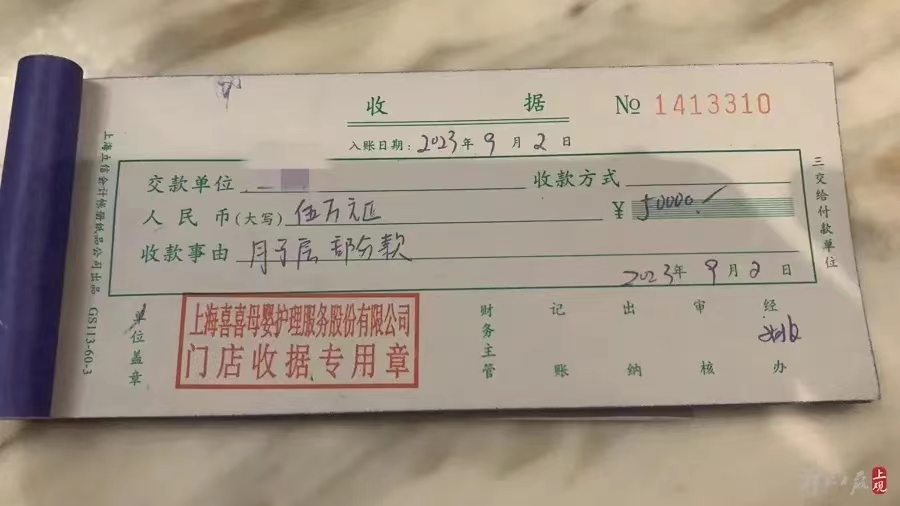 收 据
№ 1413310
入账日期：2023年9月2日
交款单位
收款方式
人民币(大写) 伍万元正
¥ 50000.
收款事由 月子房 部分款
2023年9月2日
三交给付款单位
上海立信会计帐册纸品公司出品 GS113-60-3
单位盖章
上海喜喜母婴护理服务股份有限公司
门店收据专用章
财务主管
记账
出纳
审核
经办
上观